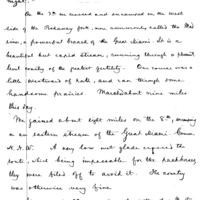 night.
On the 7th we crossed and encamped on the west
side of the Picaway fork, now commonly called the Mad
river, a powerful branch of the Great Miami. It is a
beautiful but rapid stream, running through a pleasant
level country of the greatest fertility. Our course was a
little westward of north, and ran through some
handsome prairies. Marched about nine miles
this day.
We gained about eight miles on the 8th, encamping
on an eastern stream of the Great Miami. Course
N.N.W. A very low wet glade crossed the
route, which being impassable for the packhorses
they were piloted off to avoid it. The country
was otherwise very fine.